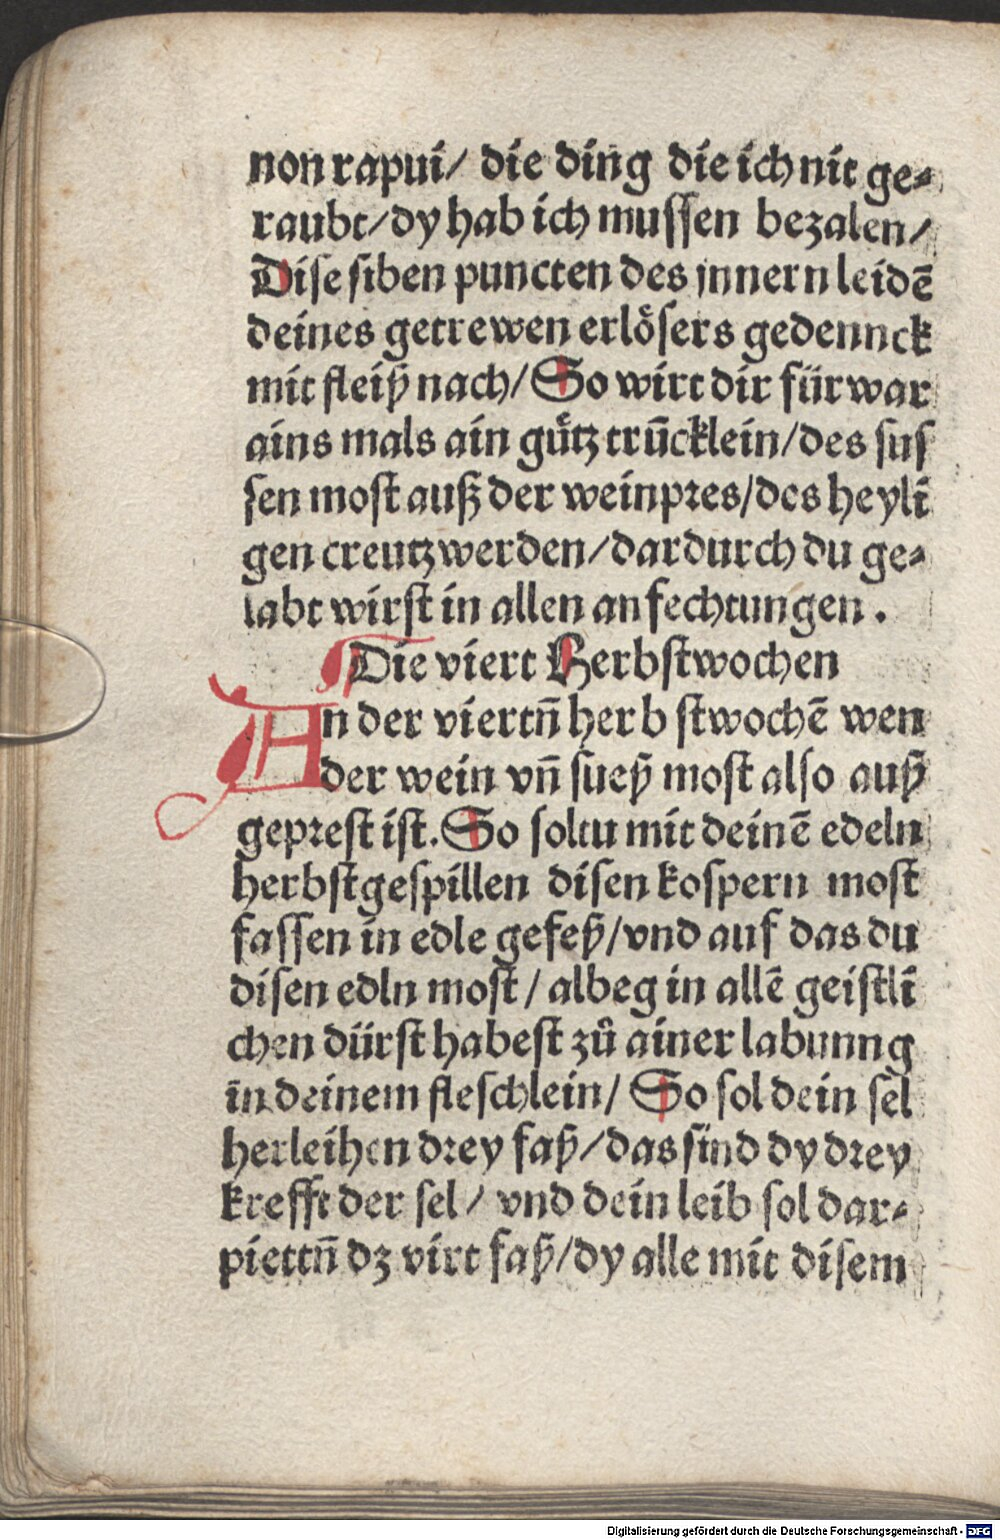 non rapui/ die ding die ich nit ge⸗
raubt/dy hab ich mussen bezalen/
Dise siben puncten des jnnern leidē
deines getrewen erlösers gedennck
mit fleiß nach/ So wirt dir für war
ains mals ain gůtz trūcklein/des sus
sen most auß der weinpres/des heyli
gen creutz werden/dardurch du ge⸗
labt wirst in allen anfechtungen.
Die viert Herbstwochen
An der viertñ herbstwochē wen
der wein vñ sueß most also auß
geprest ist. So soltu mit deinē edeln
herbstgespillen disen kospern most
fassen in edle gefeß/vnd auf das du
disen edln most/ albeg in allē geistli
chen dürst habest zů ainer labunng
in deinem fleschlein/ So sol dein sel
herleihen drey faß/das sind dy drey
krefft der sel/ vnd dein leib sol dar⸗
piettñ dz virt faß/dy alle mit disem
Digitalisierung gefördert durch die Deutsche Forschungsgemeinschaft - DFG